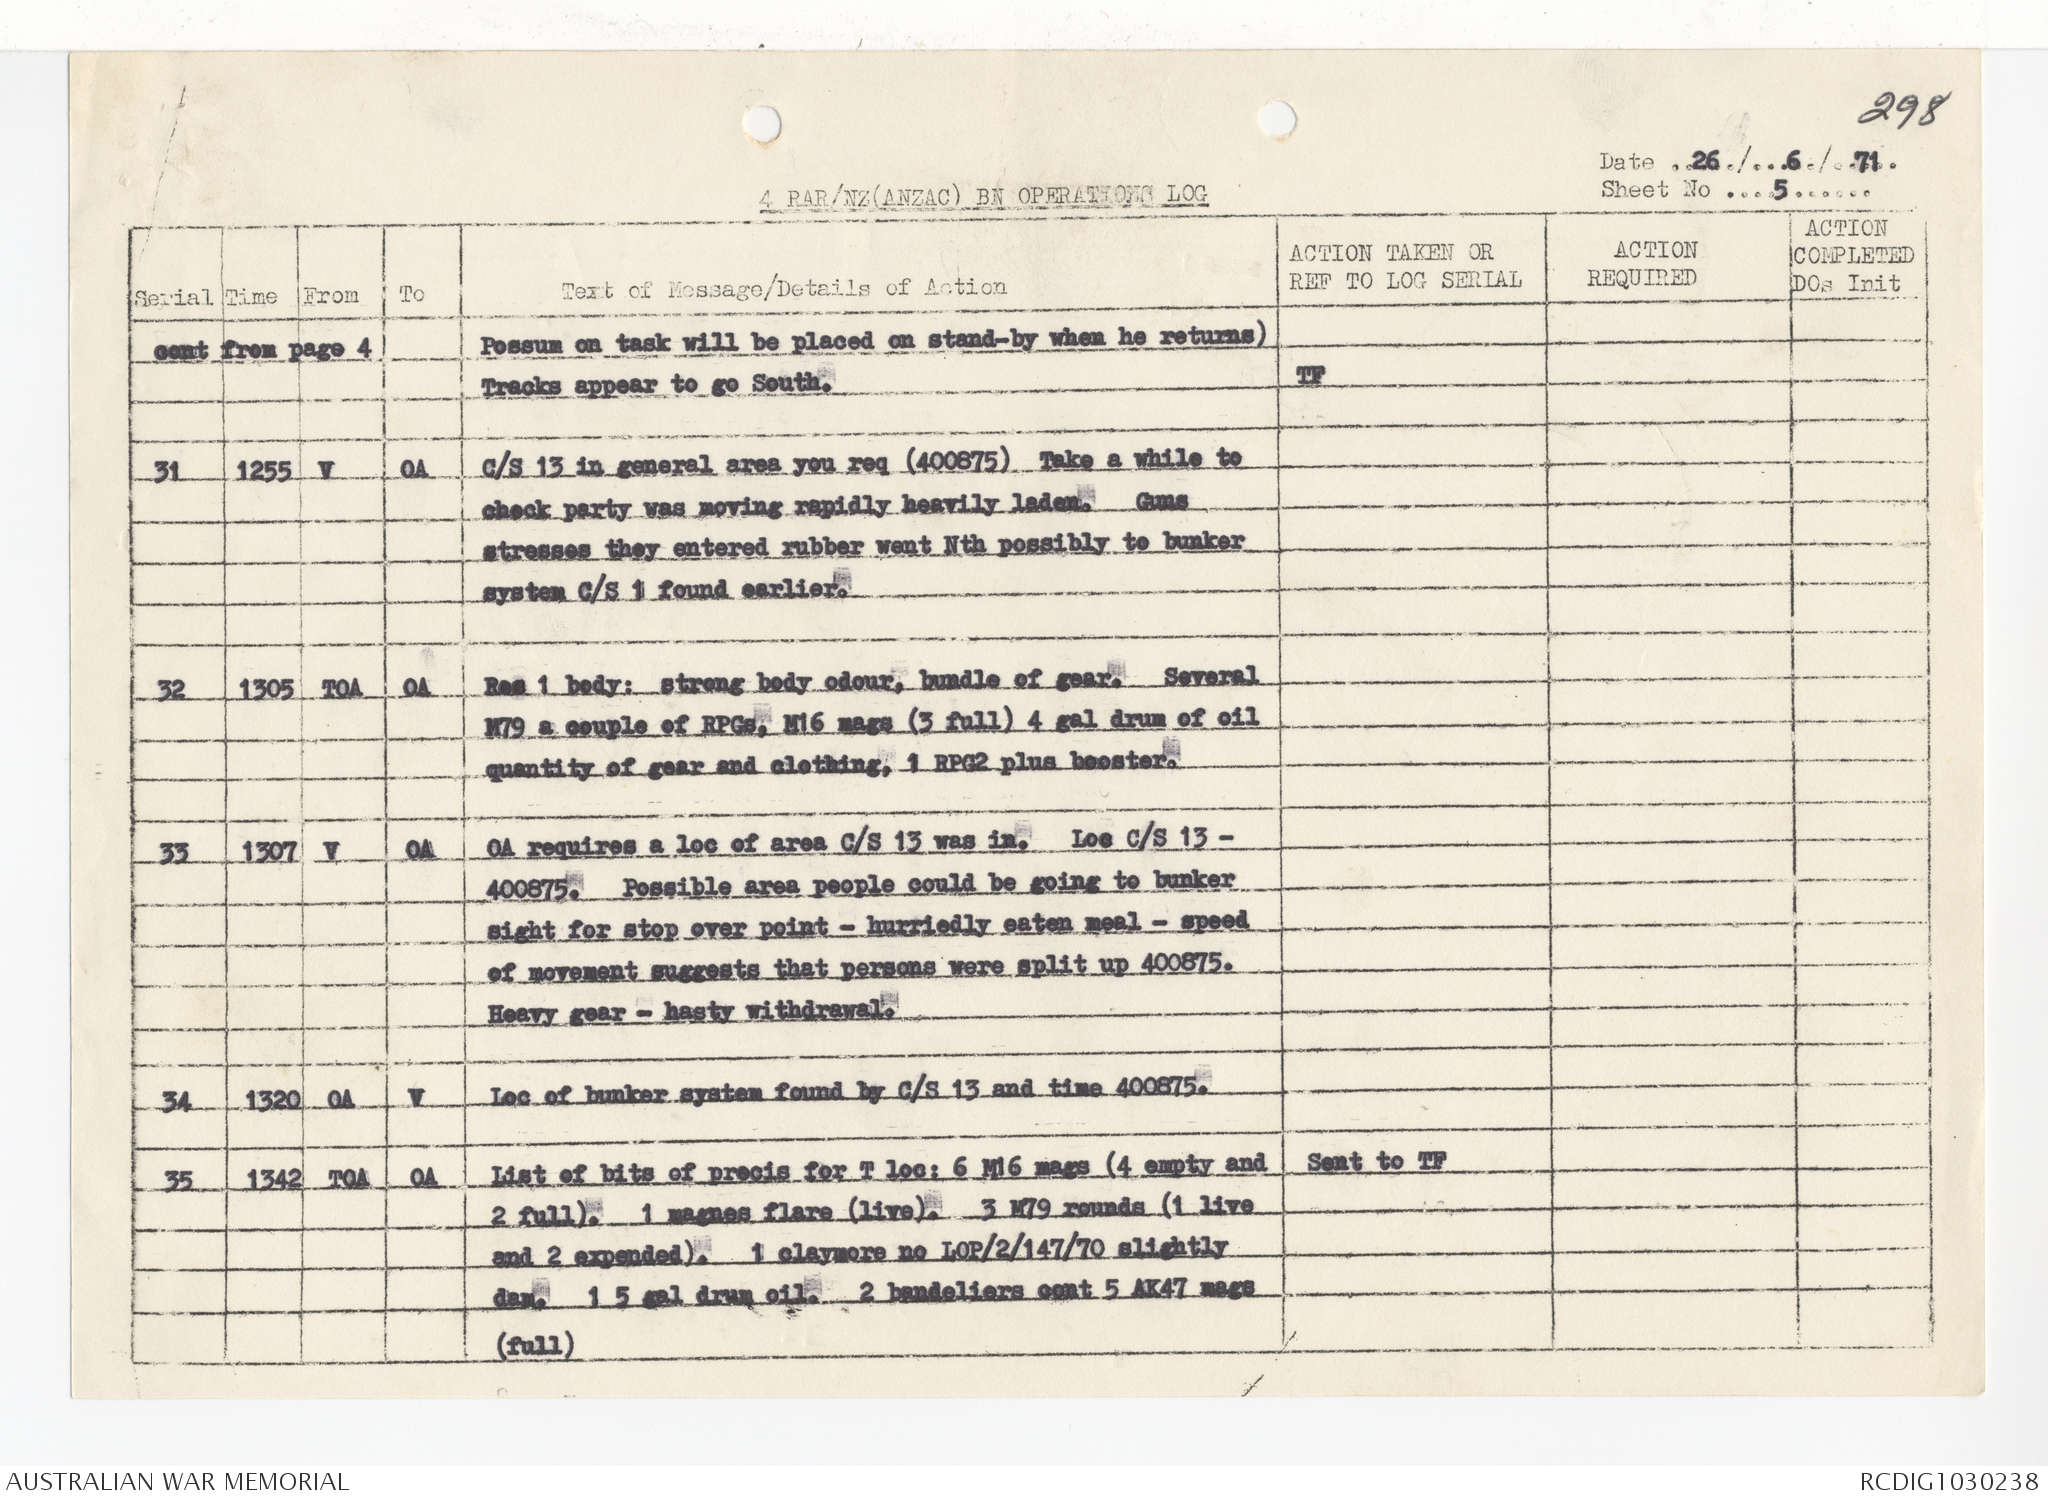 298
Date ..26./...6./..71.
Sheet No ....5......
4 RAR/NZ(ANZAC) BN OPERATIONS LOG
Serial Time From To Text of Message/Details of Action ACTION TAKEN OR REF TO LOG SERIAL ACTION REQUIRED ACTION COMPLETED DOs Init
cont from page 4 Possum on task will be placed on stand-by when he returns)
Tracks appear to go South. TF
31 1255 V OA C/S 13 in general area you req (400875) Take a while to
check party was moving rapidly heavily laden. Guns
stresses they entered rubber went Nth possibly to bunker
system C/S 1 found earlier.
32 1305 TOA OA Res 1 body: strong body odour, bundle of gear. Several
M79 a couple of RPGs, M16 mags (3 full) 4 gal drum of oil
quantity of gear and clothing, 1 RPG2 plus booster.
33 1307 V OA OA requires a loc of area C/S 13 was in. Loc C/S 13 -
400875. Possible area people could be going to bunker
sight for stop over point - hurriedly eaten meal - speed
of movement suggests that persons were split up 400875.
Heavy gear - hasty withdrawal.
34 1320 OA V Loc of bunker system found by C/S 13 and time 400875.
35 1342 TOA OA List of bits of precis for T loc: 6 M16 mags (4 empty and Sent to TF
2 full). 1 magnes flare (live). 3 M79 rounds (1 live
and 2 expended). 1 claymore no LOP/2/147/70 slightly
dam. 1 5 gal drum oil. 2 bandeliers cont 5 AK47 mags
(full)
AUSTRALIAN WAR MEMORIAL RCDIG1030238